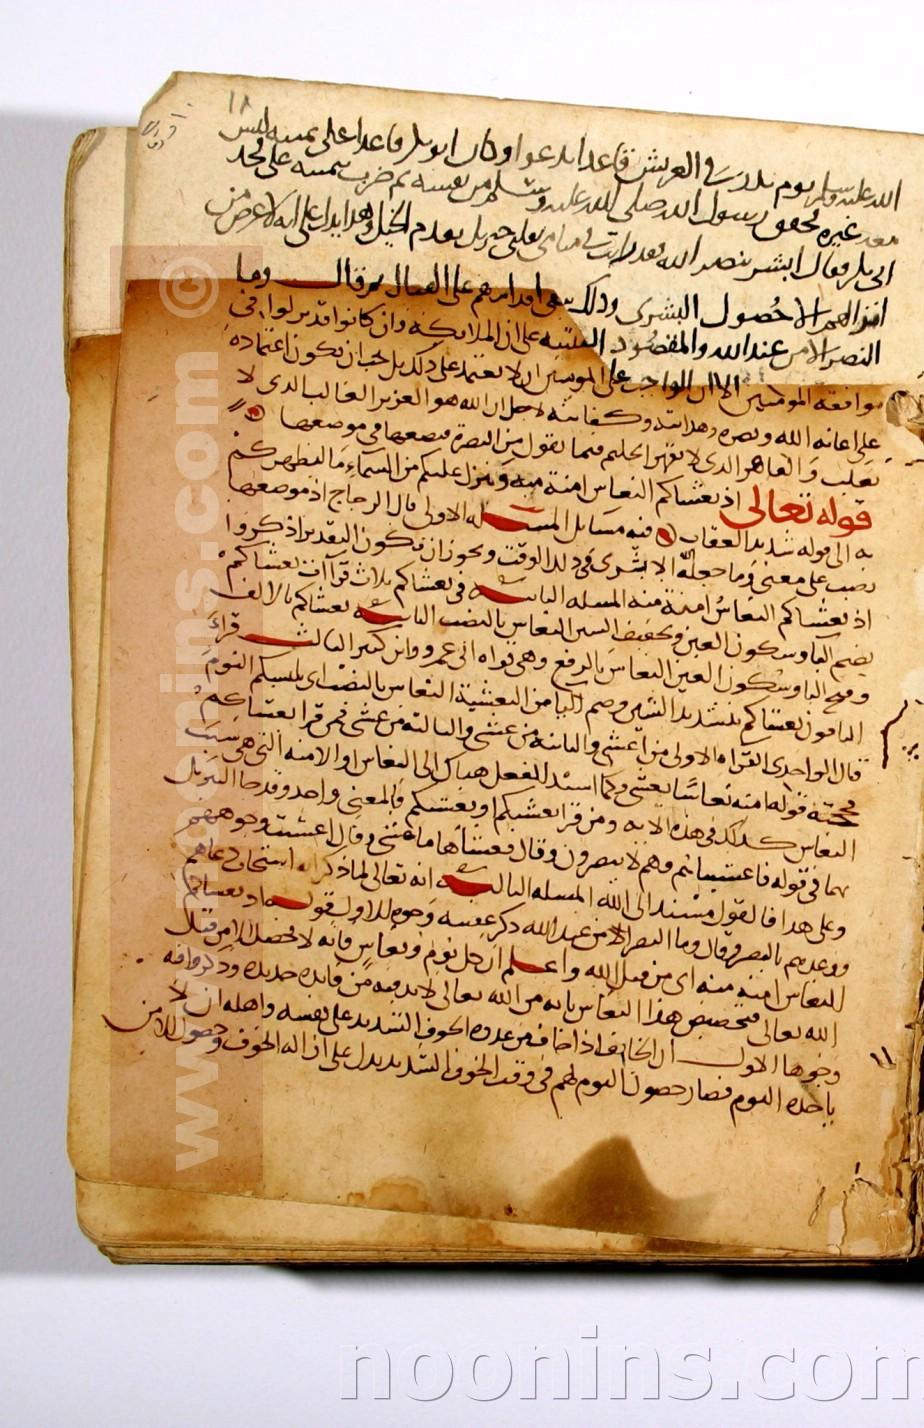 ١٨
الله عليه وسلم يوم بدر في العريش قاعدا يدعوا وكان ابو بكر قاعدا على يمينه ليس
معه غيره فخفق رسول الله صلى الله عليه وسلم من نفسه ثم ضرب بيمينه على فخذ
ابي بكر فقال ابشر بنصر الله فقد رايت في منامي جبريل يقدم الخيل وهذا يدل على انه لا غرض من
انزالهم الا حصول البشرى وذلك ينفي اقدامهم على القتال ثم قال وما
النصر الا من عند الله والمقصود التنبيه على ان الملايكة وان كانوا قد نزلوا في
موافقه المومنين الا ان الواجب على المومنين ان لا يعتمد على ذلك بل يجب ان يكون اعتماده
على اعانه الله ونصره وهدايته وكفايته لاجل ان الله هو العزيز الغالب الذي لا
يغلب والقاهر الذي لا يقهر الحكيم فيما يقول من النصرة فيضعها في موضعها
قوله تعالى اذ يغشاكم النعاس امنة منه وينزل عليكم من السماء ما ليطهركم
به الى قوله شديد العقاب فيه مسايل المسئله الاولى قال الزجاج اذ موضعها
نصب على معنى وما جعله الله الا بشرى في ذلك الوقت ويجوز ان يكون التقدير اذكروا
اذ يغشاكم النعاس امنة منه المسله الثانيه في يغشاكم ثلاث قراآت يغشاكم
بضم اليا وسكون الغين وتخفيف الشين النعاس بالنصب الثانيه يغشاكم بالالف
وفتح اليا وسكون الغين النعاس بالرفع وهي قراه ابي عمرو وابن كثير الثالث قراءة
الباقون يغشاكم بتشديد الشين وضم اليا من التغشية النعاس بالنصب اي يلبسكم النوم
قال الواحدي القراه الاولى من اغشى والثانيه من غشى والثالثه من غشى فمن قرا يغشاكم
فحجته قوله امنه نعاسا يغشى وكما اسند الفعل هناك الى النعاس او الامنه التي هي سبب
النعاس كذلك في هذه الايه ومن قرا يغشيكم او يغشيكم فالمعنى واحد وقد جا التنزيل
بهما في قوله فاغشيناهم فهم لا يبصرون وقال فغشاها ما غشى وقال اغشيت وجوههم
وعلى هذا فالقول مسند الى الله المسله الثالثه انه تعالى لما ذكر انه استجاب دعاهم
ووعدهم بالنصر وقال وما النصر الا من عند الله ذكر عقيبه وجوه الاول قوله اذ يغشاكم
النعاس امنه منه اي من قبل الله واعلم ان كل نوم ونعاس فانه لا يحصل الا من قبل
الله تعالى فتخصيص هذا النعاس بانه من الله تعالى لا بد فيه من فايده جديده وذكروا فيه
وجوها الاول ان الخايف اذا خاف من عدوه الخوف الشديد على نفسه واهله لا
ياخذه النوم فصار حصول النوم لهم في وقت الخوف الشديد يدل على ازاله الخوف وحصول الامن
www.noonins.com ©
noonins.com